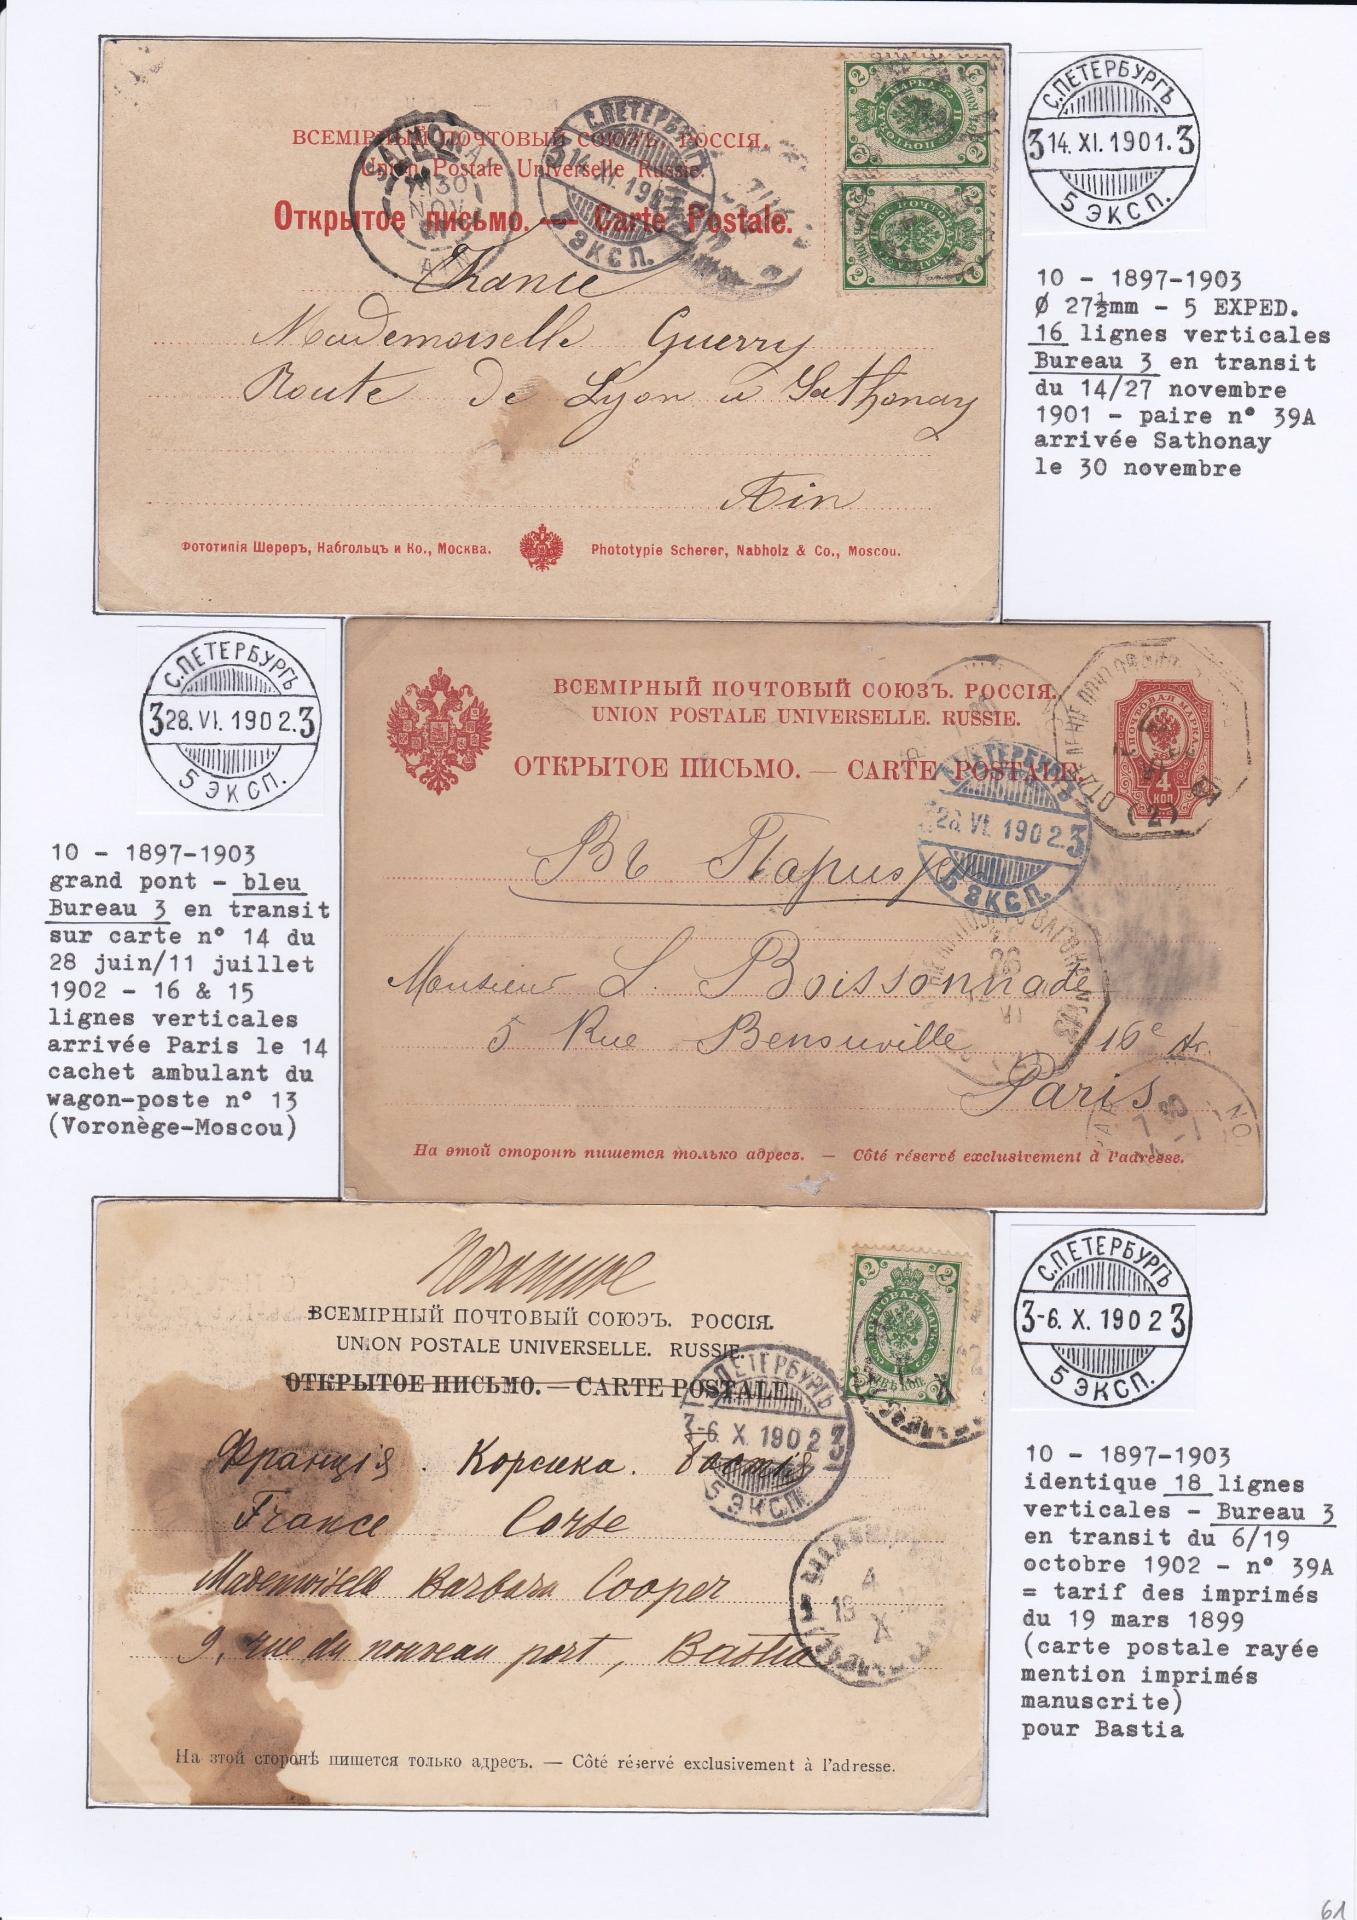 ВСЕМІРНЫЙ ПОЧТОВЫЙ СОЮЗЪ. РОССІЯ.
Union Postale Universelle Russie.
Открытое письмо. — Carte Postale.
С.ПЕТЕРБУРГЪ
3 14. XI. 190 3
5 ЭКСП.
30
NOV
AIN
France
Mademoiselle Guerry
Route de Lyon a Sathonay
Ain
Фототипія Шереръ, Набгольцъ и Ко., Москва.
Phototypie Scherer, Nabholz & Co., Moscou.
С.ПЕТЕРБУРГЪ
3 14. XI. 1901. 3
5 ЭКСП.
10 - 1897-1903
Ø 27½mm - 5 EXPED.
16 lignes verticales
Bureau 3 en transit
du 14/27 novembre
1901 - paire n° 39A
arrivée Sathonay
le 30 novembre
С.ПЕТЕРБУРГЪ
3 28. VI. 1902. 3
5 ЭКСП.
10 - 1897-1903
grand pont - bleu
Bureau 3 en transit
sur carte n° 14 du
28 juin/11 juillet
1902 - 16 & 15
lignes verticales
arrivée Paris le 14
cachet ambulant du
wagon-poste n° 13
(Voronège-Moscou)
ВСЕМІРНЫЙ ПОЧТОВЫЙ СОЮЗЪ. РОССІЯ.
UNION POSTALE UNIVERSELLE. RUSSIE.
ОТКРЫТОЕ ПИСЬМО. — CARTE POSTALE.
ПОЧТОВАЯ МАРКА
4 КОП
(2)
28. VI. 1902. 3
5 ЭКСП.
Въ Парижъ
Monsieur L. Boissonnade
5 Rue Bensuville 16e Ar.
Paris
На этой сторонѣ пишется только адресъ. — Côté réservé exclusivement à l'adresse.
ВСЕМІРНЫЙ ПОЧТОВЫЙ СОЮЗЪ. РОССІЯ.
UNION POSTALE UNIVERSELLE. RUSSIE.
ОТКРЫТОЕ ПИСЬМО. — CARTE POSTALE.
ПЕТЕРБУРГЪ
3 -6. X. 1902 3
5 ЭКСП.
Франція. Корсика. Бастія
France Corse
Mademoiselle Barbara Cooper
9, rue du nouveau port, Bastia
4
X
На этой сторонѣ пишется только адресъ. — Côté réservé exclusivement à l'adresse.
С.ПЕТЕРБУРГЪ
3 -6. X. 1902 3
5 ЭКСП.
10 - 1897-1903
identique 18 lignes
verticales - Bureau 3
en transit du 6/19
octobre 1902 - n° 39A
= tarif des imprimés
du 19 mars 1899
(carte postale rayée
mention imprimés
manuscrite)
pour Bastia
61